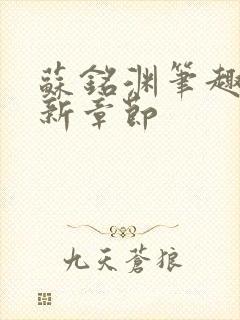 蘇銘淵筆趣
新章節
九天蒼狼